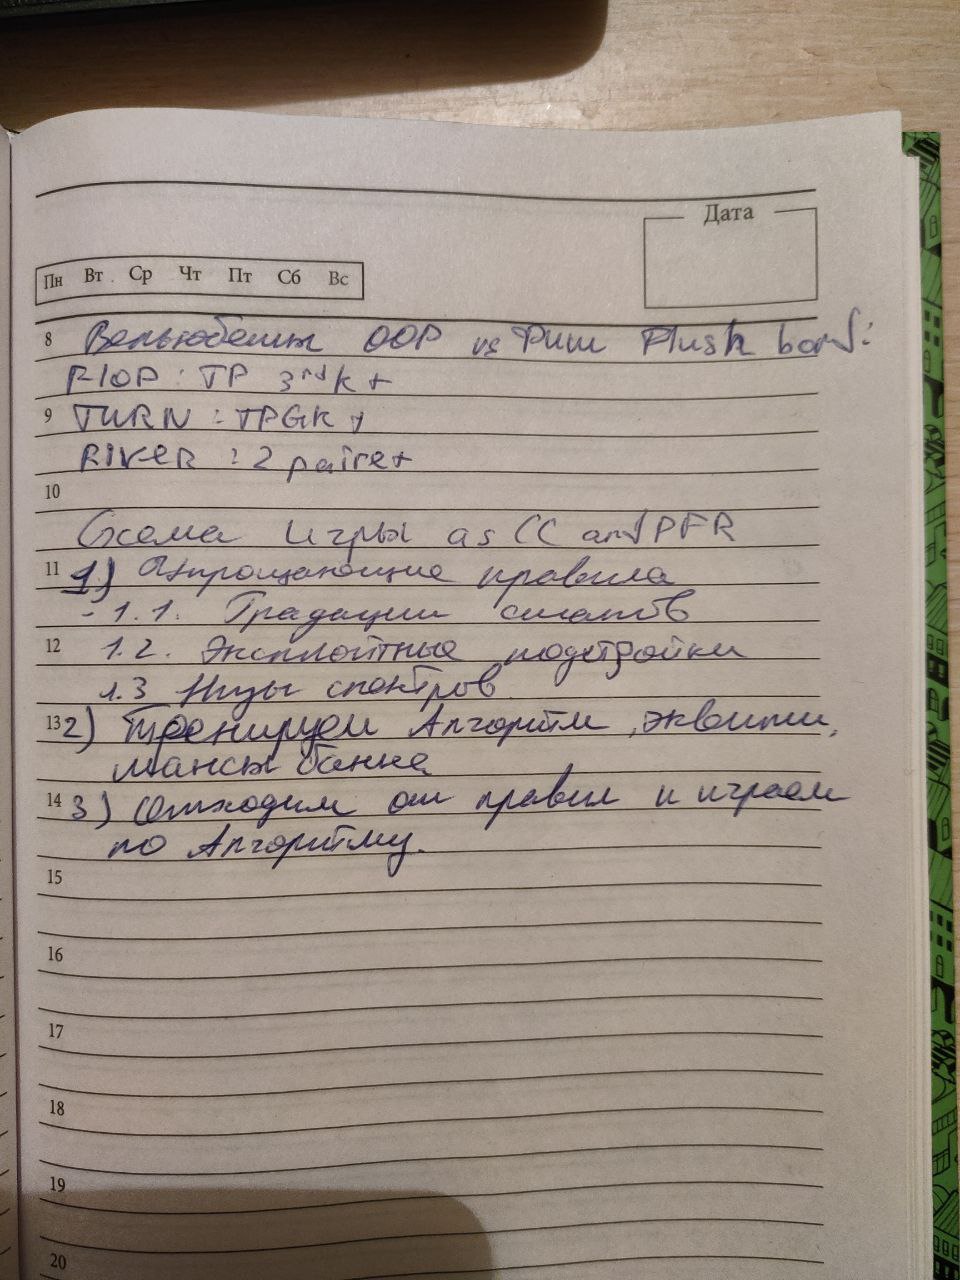 Дата
Пн Вт Ср Чт Пт Сб Вс
8 Вельюбетим OOP vs Фиш Flush bord:
FlOP : TP 3rd k +
9 TURN : TPGK +
RIVER : 2 paire+
10
Схема игры as CC and PFR
11 1) Упрощающие правила
- 1.1. Градации сизингов
12 1.2. Эксплойтные подстройки
1.3 Низы спектров
13 2) Тренируем Алгоритм, эквити,
шансы банка
14 3) Отходим от правил и играем
по Алгоритму.
15
16
17
18
19
20